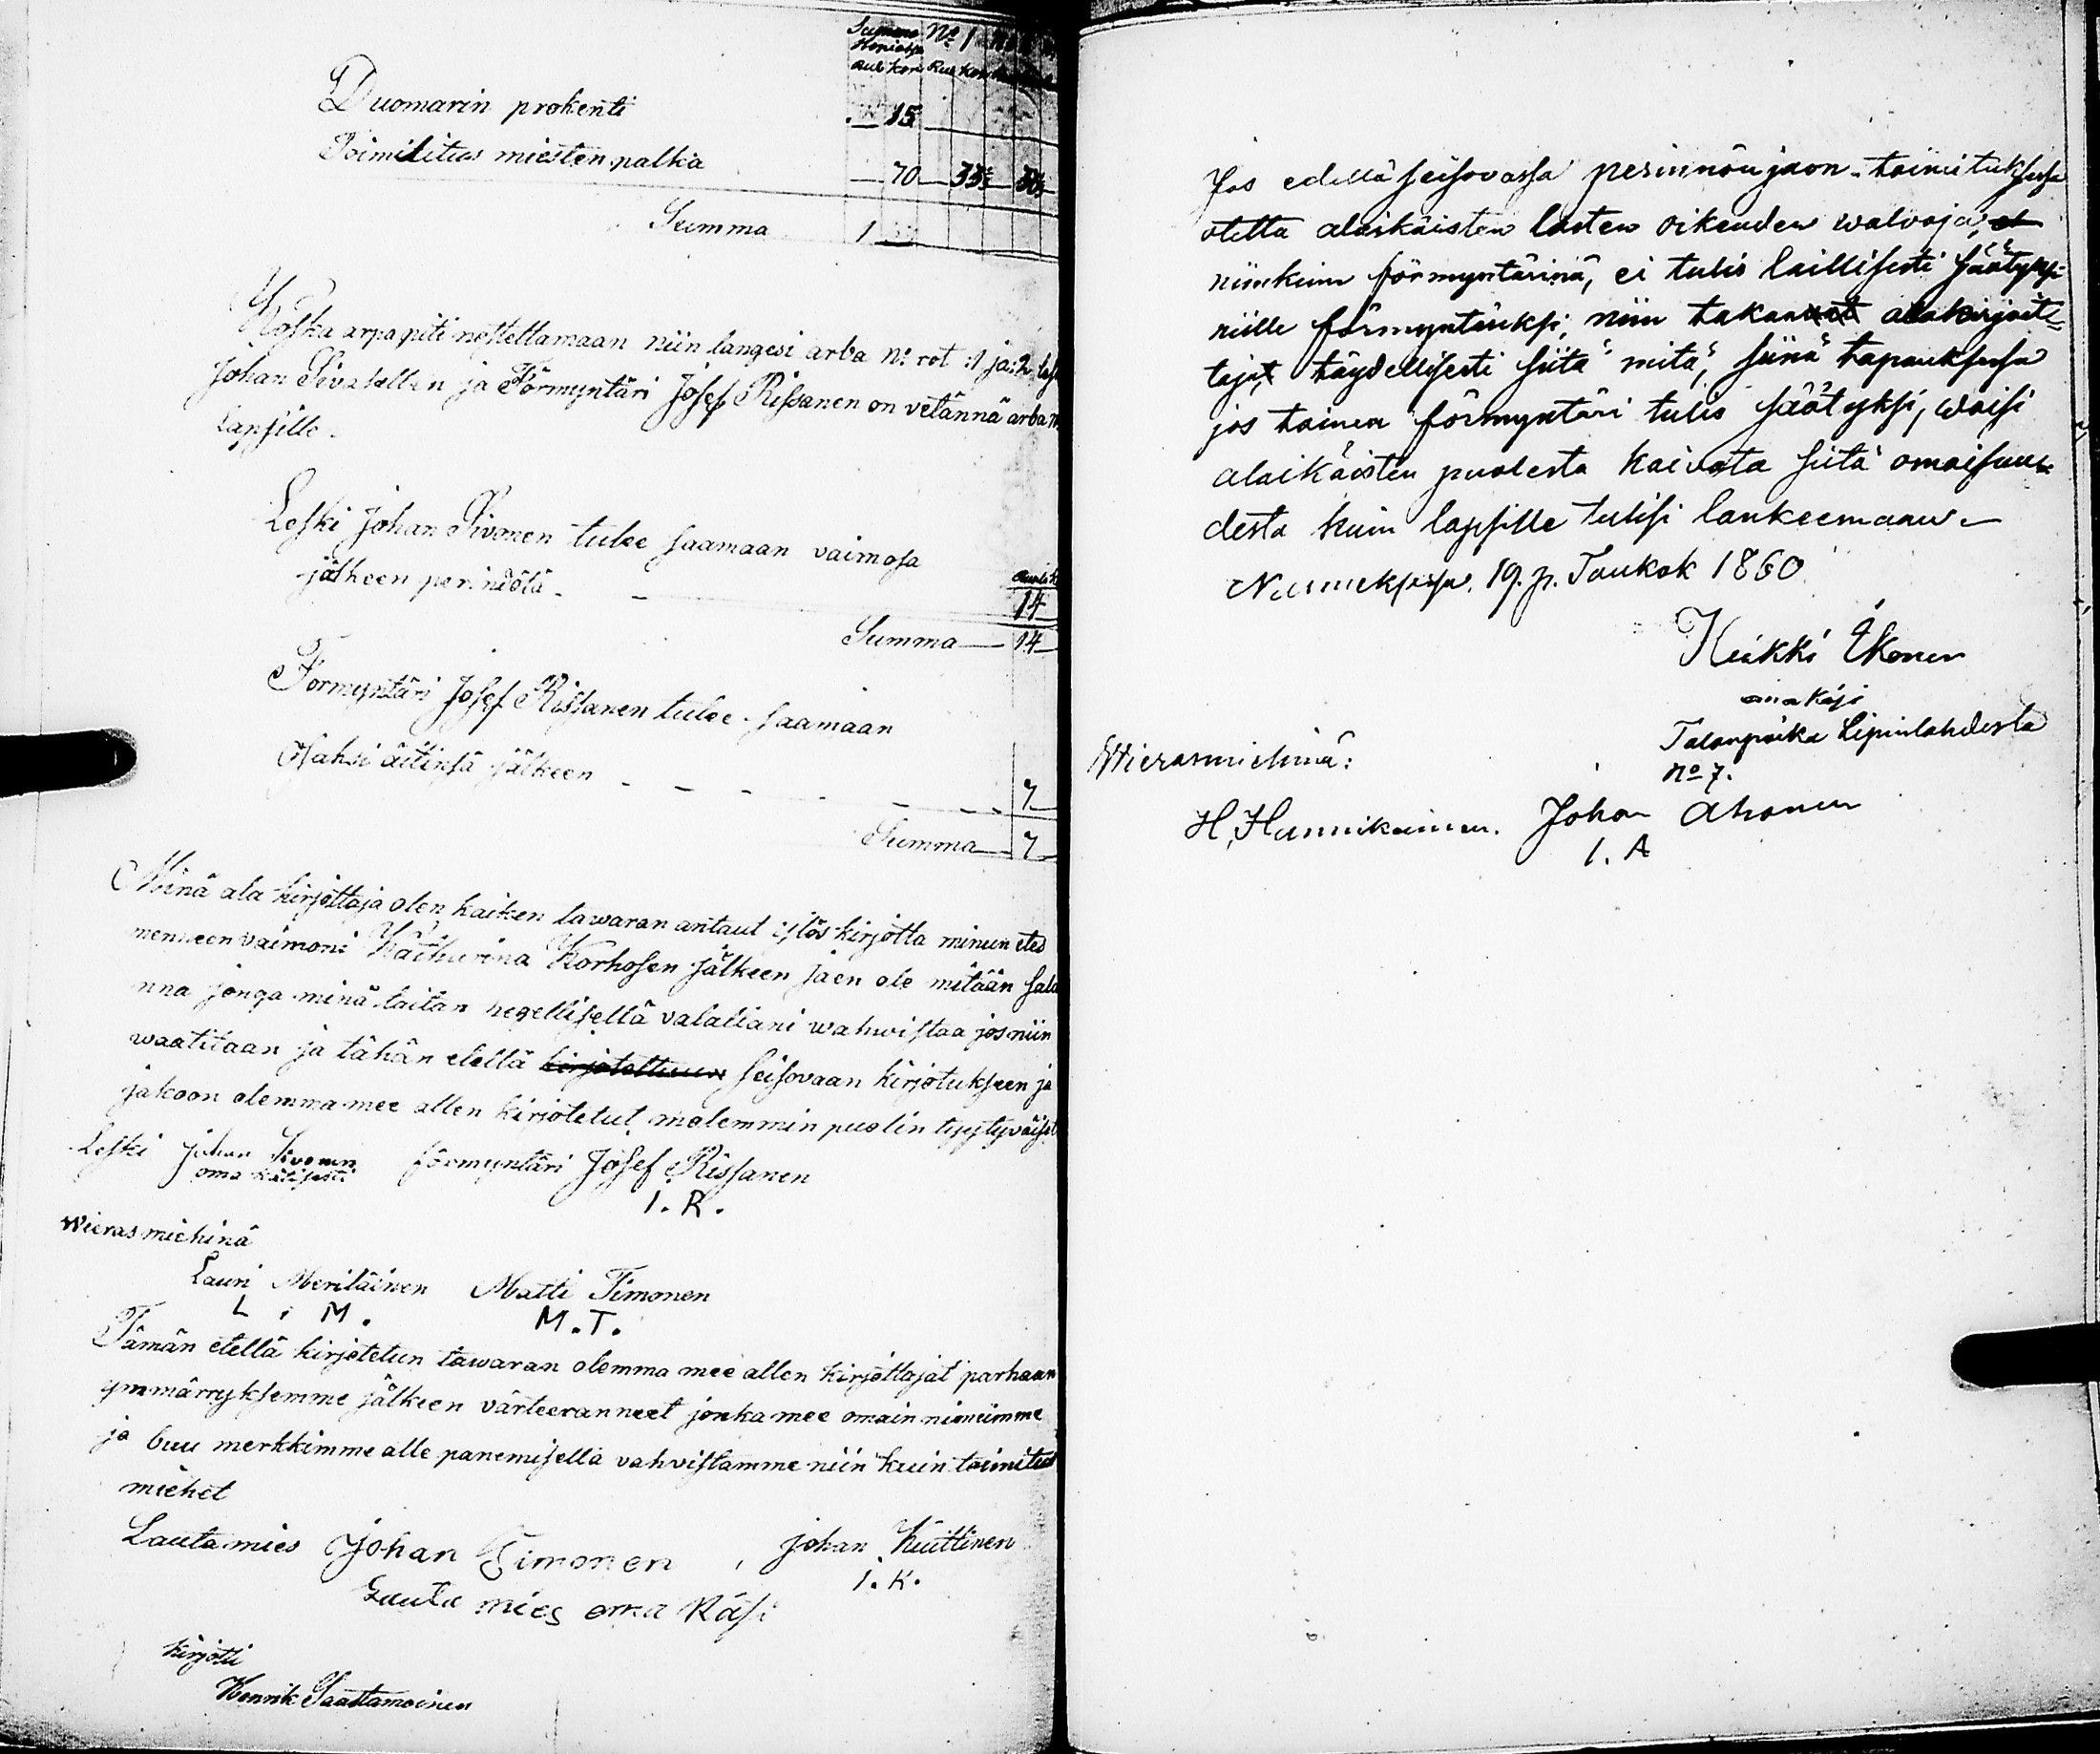 Summa No 1
Rub Kop Rub Kop
Duomarin prosenti — 15
Toimitus miesten palka — 70 — 35 —
Summa 1
Koska arpa piti nostettamaan niin langesi arba No rot :1 ja :2
Johan Sivosellen ja Förmyntäri Josef Rissanen on vetännä arba
Lapsille.
Leski Johan Sivonen tulee saamaan vaimosa
jälkeen perindötä - - 14
Summa — 14 —
Förmyntäri Josef Rissanen tulee saamaan
äitinsä jälkeen - - - - - - 7 —
Summa — 7 —
Minä ala kirjottaja olen kaiken tawaran antaut ylös kirjotta minun
menneen vaimoni Kathurina Korhosen jälkeen ja en ole mitään
nna jonga minä taitan hegellisellä valallani wahwistaa jos niin
waatitaan ja tähän etellä kirjotettuun seisovaan kirjotukseen ja
jakoon olemma mee allen kirjotetut molemmin puolin tyytyväiset
Leski Johan Sivonen förmyntäri Josef Rissanen
oma kätisesti I. R.
Wieras miehinä
Lauri Meriläinen Matti Timonen
L . M. M. T.
Tämän etellä kirjotetun tawaran olemma mee allen kirjottajat parhaan
ymmärryksemme jälkeen värteeranneet jonka mee omain nimeimme
ja buu merkkimme alle panemisella vahvistamme niin kuin toimitus
miehet
Lautamies Johan Timonen , Johan Kuittinen
Lauta mies oma Käsi I. K.
kirjotti
Henrik Saastamoinen
Jos edellä seisovassa perinnönjaon-toimituksessa
otettu alaikäisten lasten oikeuden walvoja,
niinkuin förmyntärinä, ei tulis laillisesti säätyksi
niille förmyntäriksi, niin takaa alakirjoit=
taja täydellisesti siitä mitä, siinä tapauksessa
jos toinen förmyntäri tulis säätyksi, woisi
alaikäisten puolesta kaivata siitä omaisuu-
desta kuin lapsille tulisi lankeemaan. —
Nurmeksessa. 19. p. Toukok 1860
Heikki Ikonen
oma käsi
Talonpoika Lipinlahdesta
No 7.
Wierasmiehinä:
H. Hannikainen. Johan Ahonen
I. A